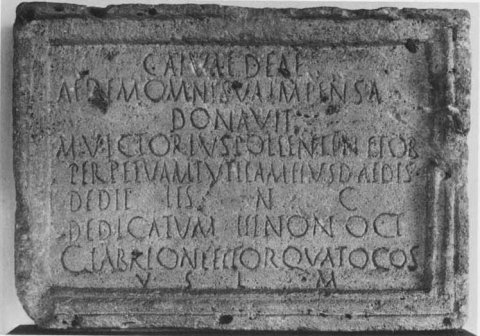 CAIVAE DEAE
AEDEM OMNI SVA IMPENSA
DONAVIT
M VICTORIVS POLLENTIN ET OB
PERPETVAM TVTELAM EIVSD AEDIS
DEDIT HS N C
DEDICATVM III NON OCT
GLABRIONE ET TORQVATO COS
V S L M